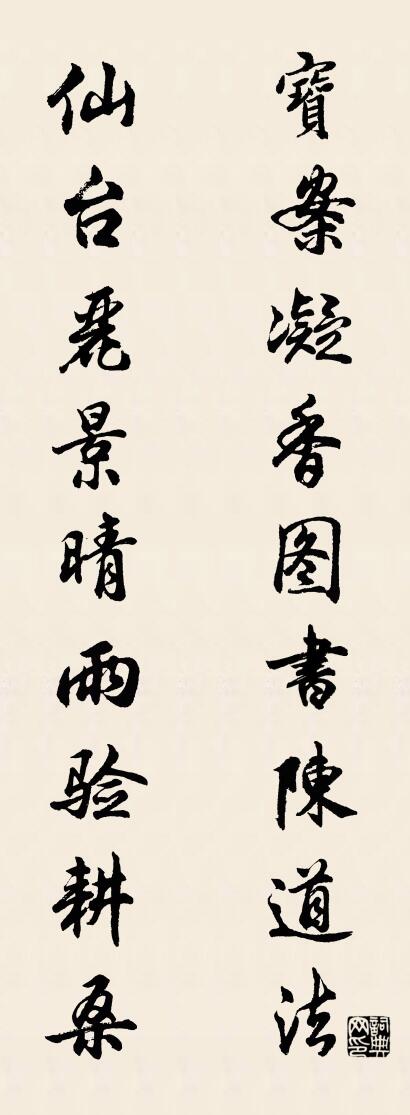 寶案凝香图書陳道法
仙台麗景晴雨验耕桑
詞典网印